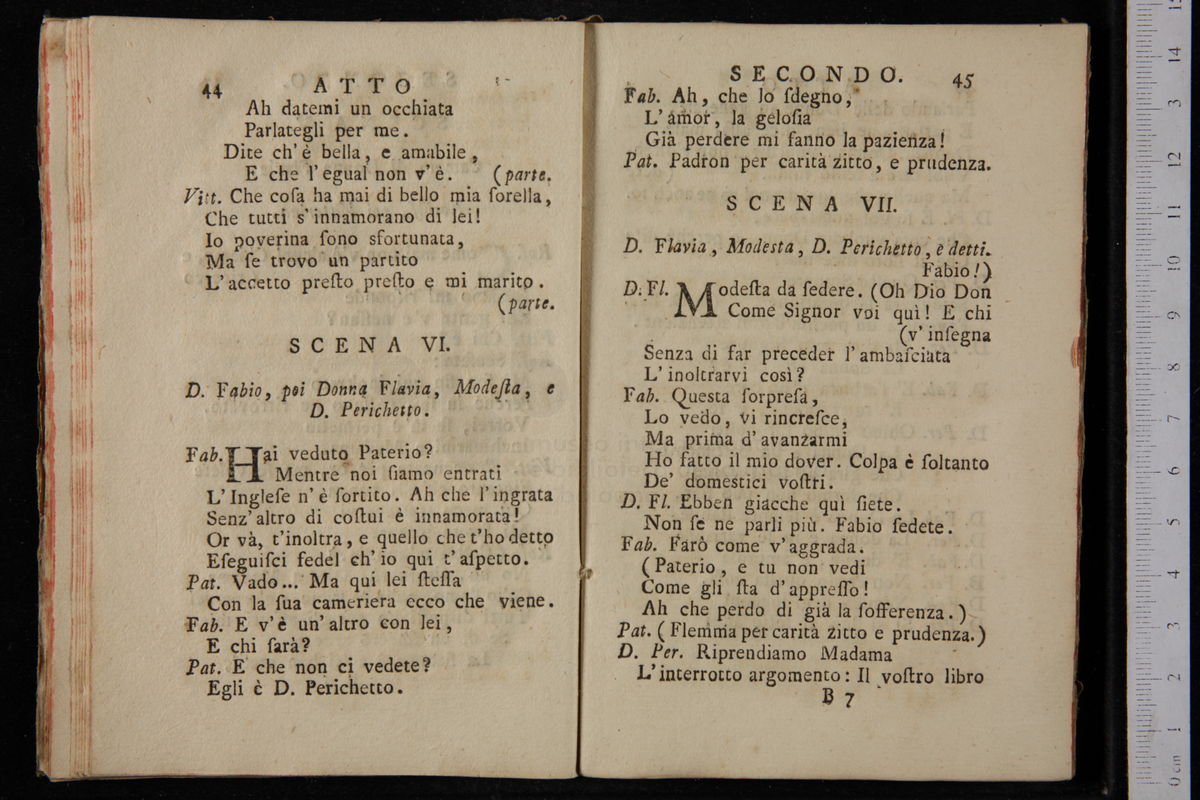 44 ATTO
Ah datemi un occhiata
Parlategli per me.
Dite ch'è bella, e amabile,
E che l'egual non v'è. (parte.
Vitt. Che coſa ha mai di bello mia ſorella,
Che tutti s'innamorano di lei!
Io poverina ſono sfortunata,
Ma ſe trovo un partito
L'accetto preſto preſto e mi marito.
(parte.
SCENA VI.
D. Fabio, poi Donna Flavia, Modeſta, e
D. Perichetto.
Fab. Hai veduto Paterio?
Mentre noi ſiamo entrati
L'Ingleſe n'è ſortito. Ah che l'ingrata
Senz'altro di coſtui è innamorata!
Or và, t'inoltra, e quello che t'ho detto
Eſeguiſci fedel ch'io qui t'aſpetto.
Pat. Vado... Ma qui lei ſteſſa
Con la ſua cameriera ecco che viene.
Fab. E v'è un'altro con lei,
E chi ſarà?
Pat. E che non ci vedete?
Egli è D. Perichetto.
SECONDO. 45
Fab. Ah, che lo ſdegno,
L'amor, la geloſia
Già perdere mi fanno la pazienza!
Pat. Padron per carità zitto, e prudenza.
SCENA VII.
D. Flavia, Modesta, D. Perichetto, e detti.
Fabio!)
D. Fl. Modeſta da ſedere. (Oh Dio Don
Come Signor voi quì! E chi
(v'inſegna
Senza di far preceder l'ambaſciata
L'inoltrarvi così?
Fab. Questa ſorpreſa,
Lo vedo, vi rincreſce,
Ma prima d'avanzarmi
Ho fatto il mio dover. Colpa è ſoltanto
De' domestici voſtri.
D. Fl. Ebben giacche quì ſiete.
Non ſe ne parli più. Fabio ſedete.
Fab. Farò come v'aggrada.
(Paterio, e tu non vedi
Come gli ſta d'appreſſo!
Ah che perdo di già la ſofferenza.)
Pat. (Flemma per carità zitto e prudenza.)
D. Per. Riprendiamo Madama
L'interrotto argomento: Il voſtro libro
B 7
0 cm 1 2 3 4 5 6 7 8 9 10 11 12 13 14 15